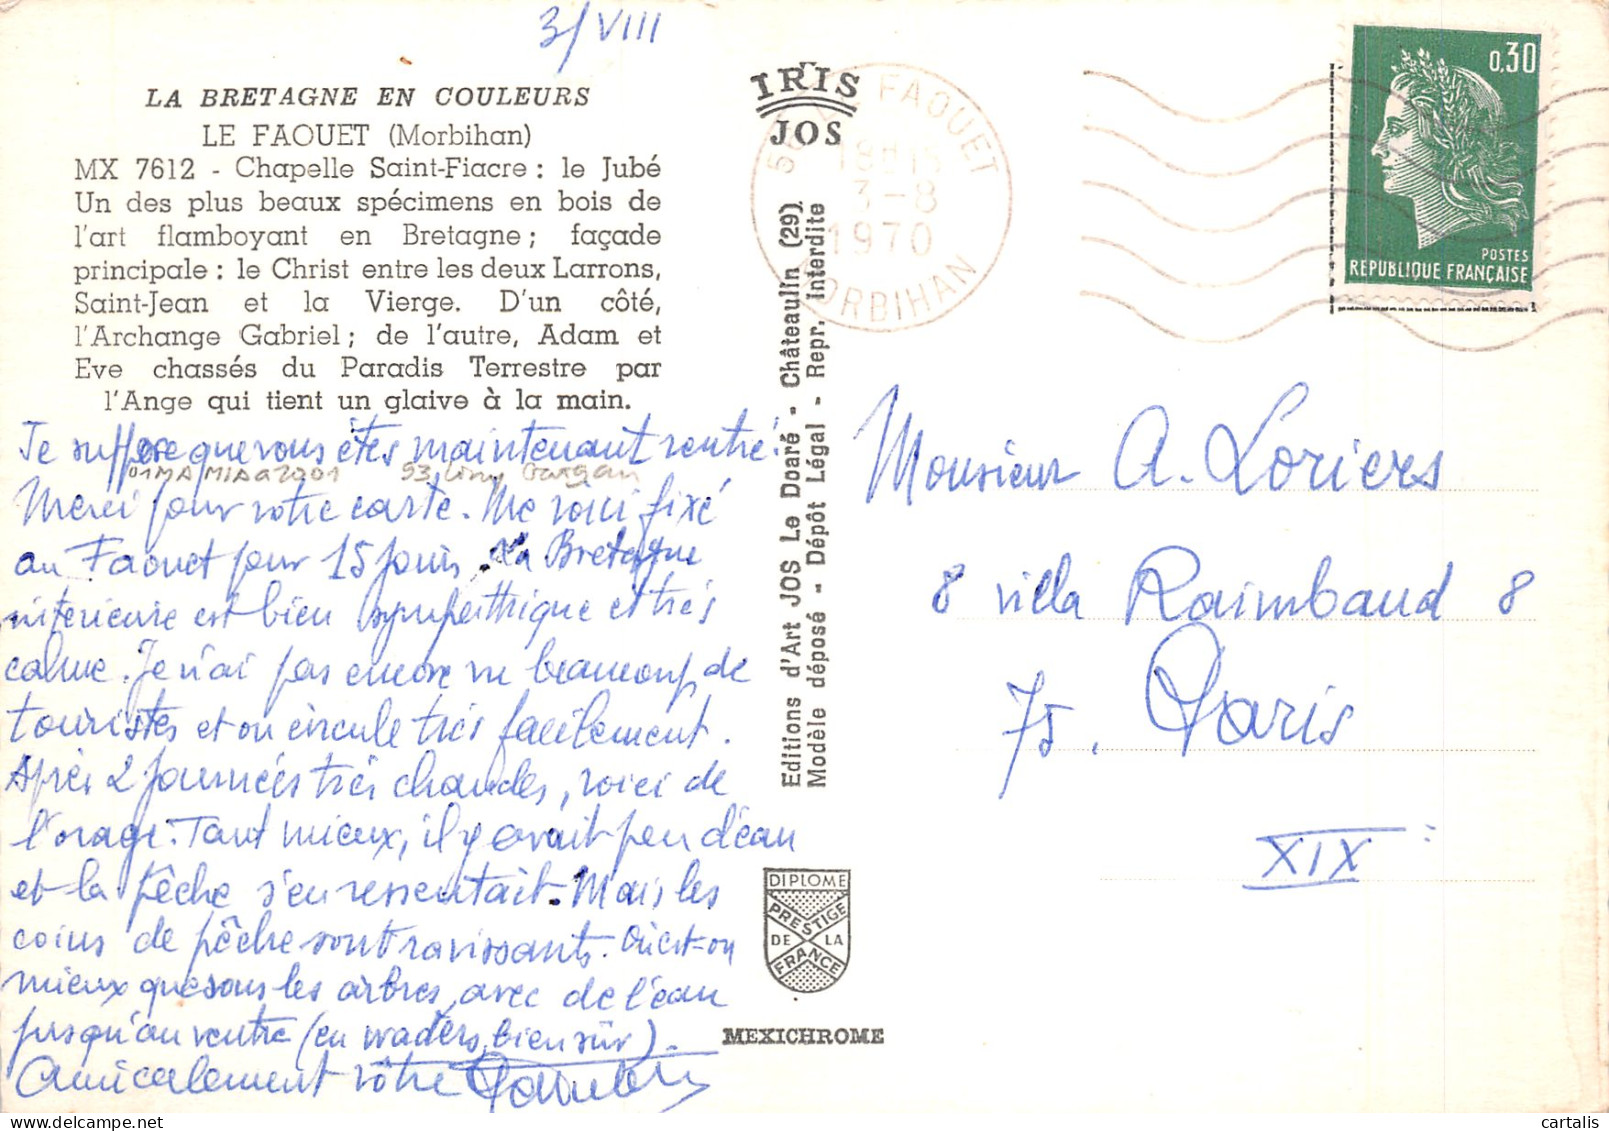 3/VIII
LA BRETAGNE EN COULEURS
LE FAOUET (Morbihan)
MX 7612 - Chapelle Saint-Fiacre : le Jubé
Un des plus beaux spécimens en bois de
l'art flamboyant en Bretagne ; façade
principale : le Christ entre les deux Larrons,
Saint-Jean et la Vierge. D'un côté,
l'Archange Gabriel ; de l'autre, Adam et
Eve chassés du Paradis Terrestre par
l'Ange qui tient un glaive à la main.
Je suppose que vous êtes maintenant rentré.
53
Merci pour votre carte. Me voici fixé
au Faouet pour 15 jours. La Bretagne
intérieure est bien sympathique et très
calme. Je n'ai pas encore vu beaucoup de
touristes et on circule très facilement.
Après 2 journées très chaudes, voici de
l'orage. Tant mieux, il y avait peu d'eau
et la pêche s'en ressentait. Mais les
coins de pêche sont ravissants. Où est-on
mieux que sous les arbres, avec de l'eau
jusqu'au ventre (en waders, bien sûr).
Amicalement vôtre
IRIS
JOS
Editions d'Art JOS Le Doaré - Châteaulin (29).
Modèle déposé - Dépôt Légal - Repr. Interdite
DIPLOME
PRESTIGE
DE LA
FRANCE
MEXICHROME
FAOUET
18H15
3-8
1970
MORBIHAN
0,30
POSTES
REPUBLIQUE FRANÇAISE
Monsieur A. Loriers
8 villa Raimbaud 8
75. Paris
XIX
cartalis
www.delcampe.net